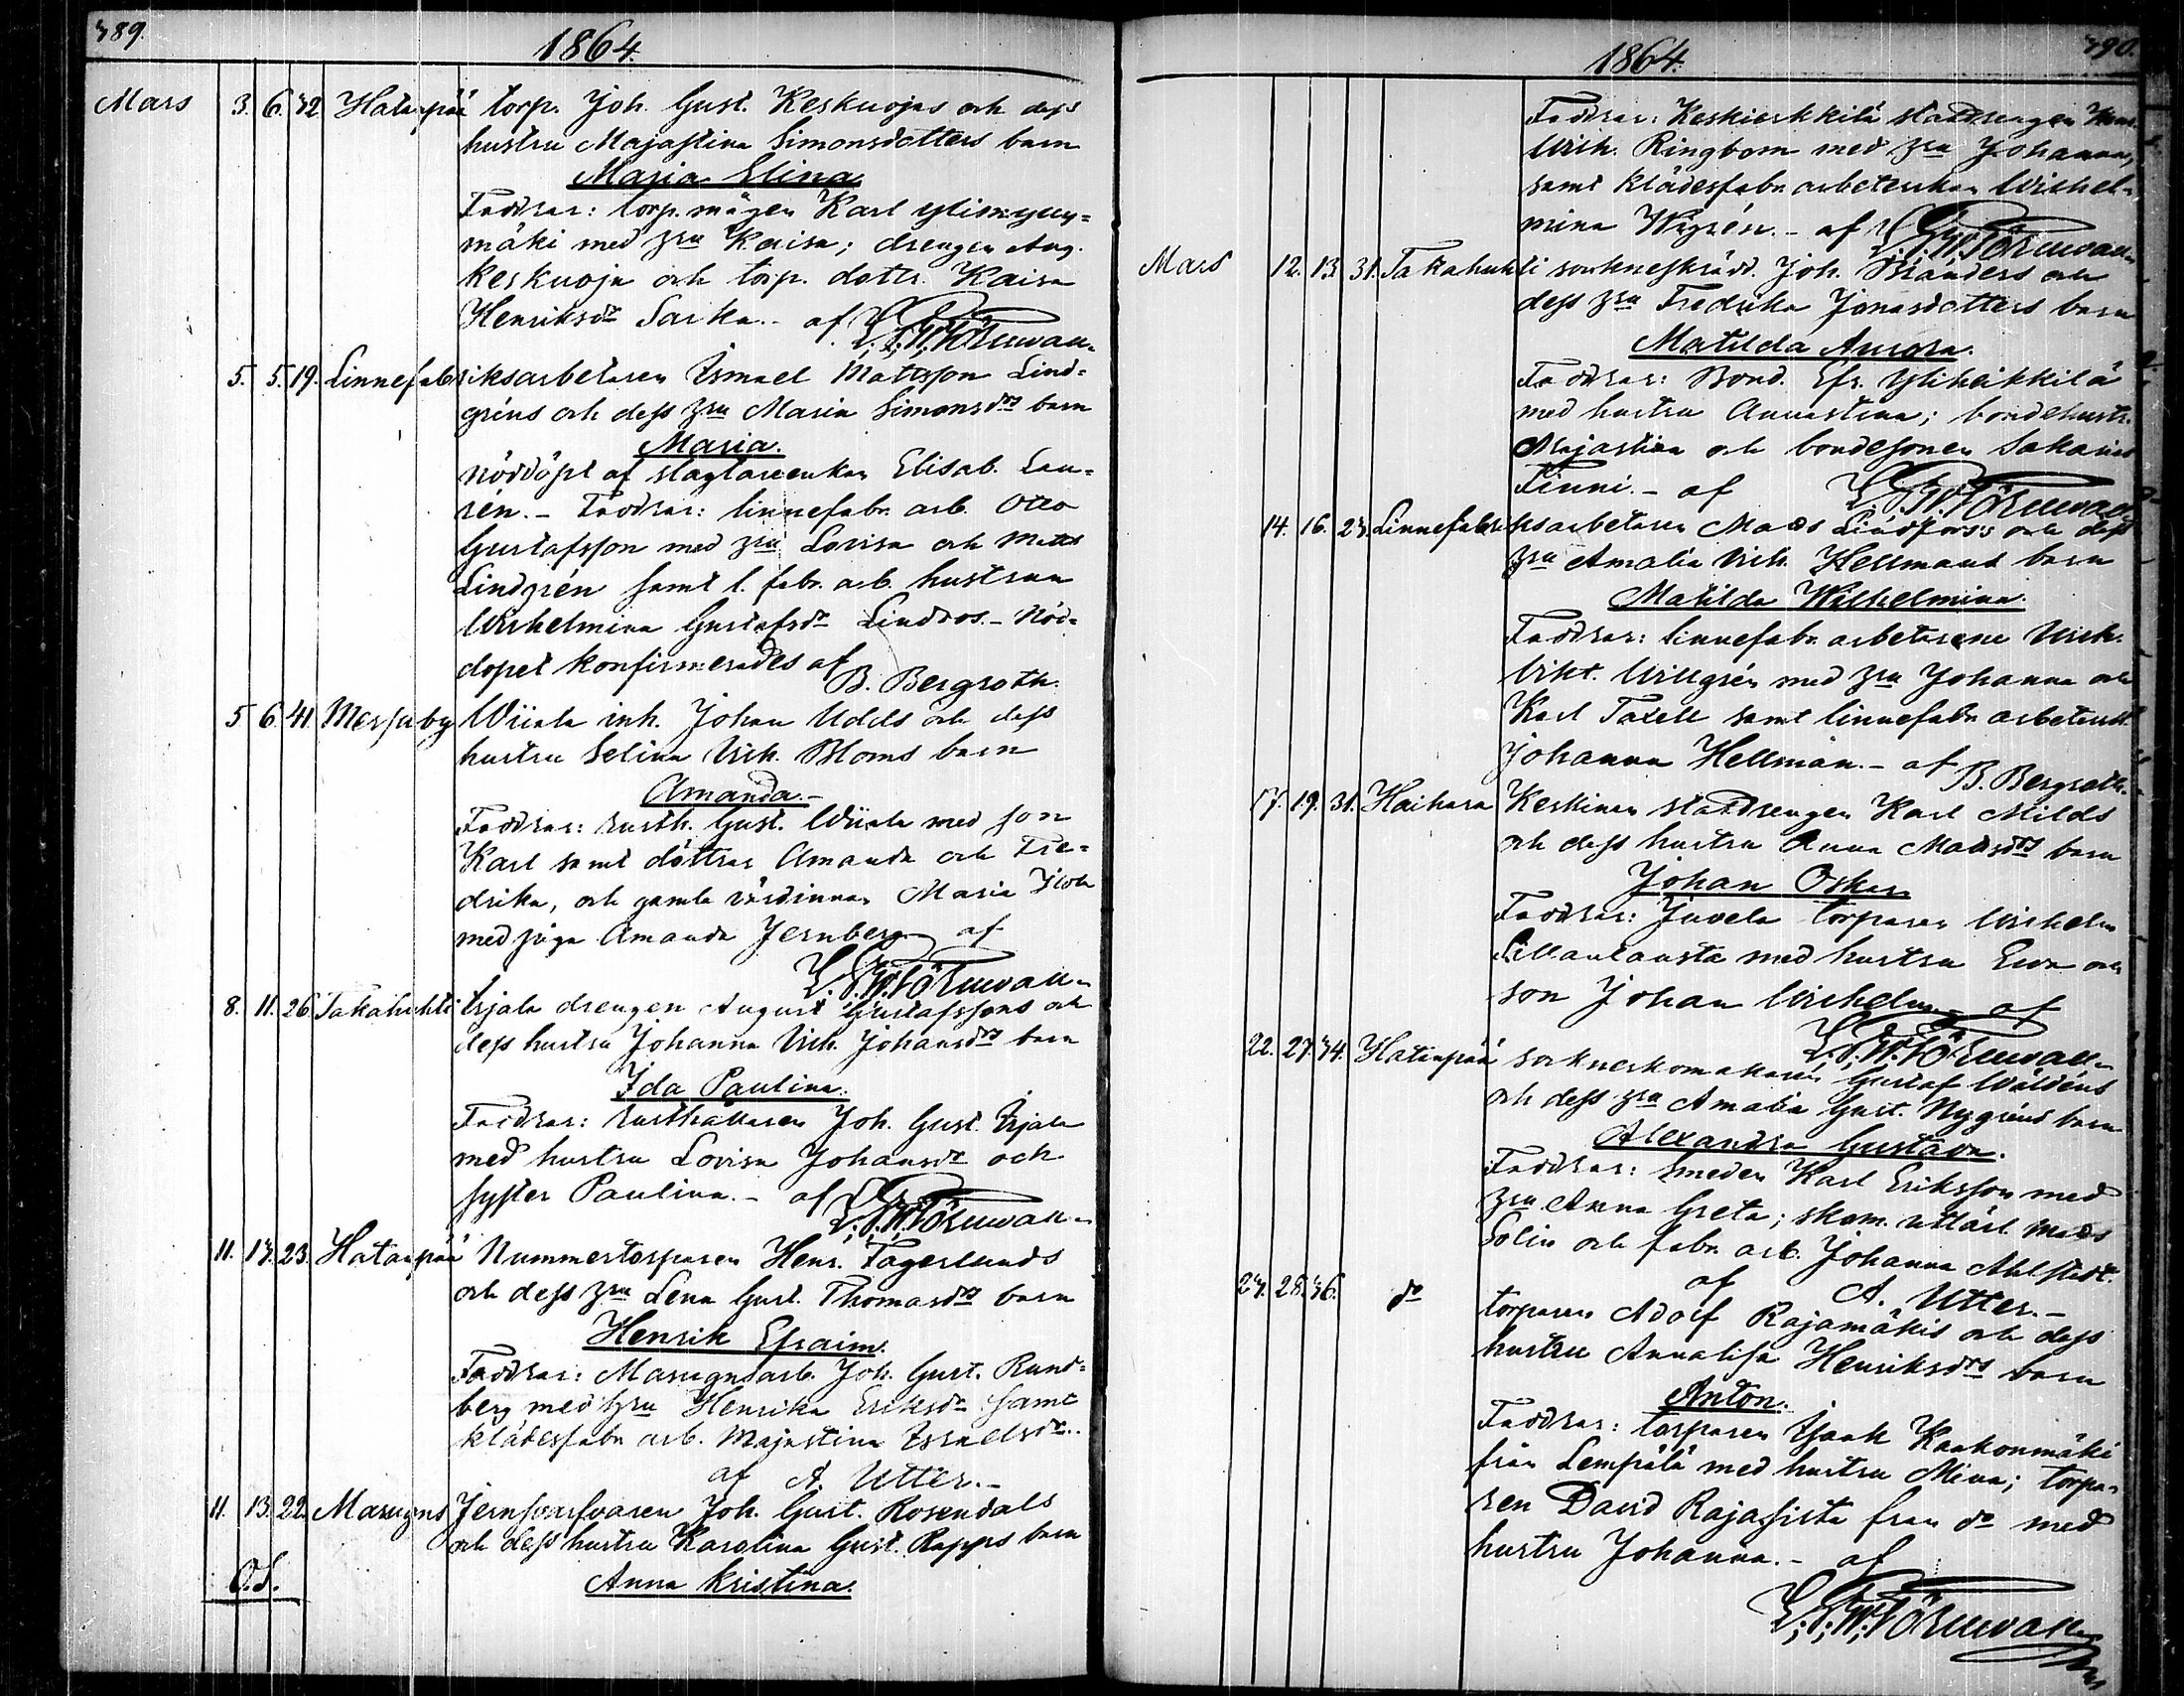 389.
1864.
Mars 3. 6. 32 Hatanpää torp. Joh. Gust. Keskuojas och dess
hustru Majastina Simonsdotters barn
Maria Elina
Faddrar: torp. mågen Karl
mäki med hru Kaisa; drengen Aug.
Keskuoja och torp. dottr. Kaisa
Henriksdr Sarka. - af
5. 5. 19. Linnefabriksarbetaren Ismael Mattsson Lind=
gréns och dess hru Maria Simonsdrs barn
Maria.
Nöddöpt af slagtareenkan Elisab. Lau=
rén. - Faddrar: linnefabr. arb. Otto
Gustafsson med hru Lovisa och Matts
Lindgrén samt l. fabr. arb. hustrun
Wilhelmina Gustafsdr Lindros. - Nöd=
dopet konfirmerades af
B. Bergroth.
5 6. 41. Messuby Wiiala inh. Johan Udds och dess
hustru Selina Wilh. Bloms barn
Amanda. -
Faddrar: rusth. Gust. Wiiala med son
Karl samt döttrar Amanda och Fre=
drika, och gamla värdinnan Maria
med piga Amanda Jernberg af
8. 11. 26. Takahuhti Irjala drengen August Gustafssons och
dess hustru Johanna Wilh. Johansdrs barn
Ida Paulina.
Faddrar: rusthållaren Joh. Gust. Irjala
med hustru Lovisa Johansdr och
syster Paulina. - af
11. 13. 23. Hatanpää Nummertorparen Henr. Fagerlunds
och dess hru Lena Gust. Thomasdrs barn
Henrik Efraim.
Faddrar: Masugnsarb. Joh. Gust. Rund=
berg med hru Henrika Eriksdr samt
klädesfabr. arb. Majastina Israelsdr.
af A. Utter. -
11. 13. 22. Masugns Joh. Gust. Rosendals
och dess hustru Karolina Gust. Rapps barn
O.S. Anna Kristina.
390.
1864.
Faddrar: Keskierkkilä statdrengen
Wilh. Ringbom med hru Johanna,
samt klädesfabr. arbeterskan Wilhel=
mina Wigrén. - af
Mars 12. 13. 31. Takahuhti Joh. Branders och
dess hru Fredrika Jonasdotters barn
Matilda Aurora.
Faddrar: Bond. Efr. Yliheikkilä
med hustru Annastina; bondehustr.
Majastina och bondesonen Sakarias
Finni. - af
14. 16. 23. Linnefabriksarbetaren Mads Lindfors's och dess
hru Amalia Wilh. Hellmans barn
Matilda Wilhelmina.
Faddrar: linnefabr. arbetarene Wilh.
Wikt. Willgrén med hru Johanna och
Karl Taxell samt linnefabr. arbeterst.
Johanna Hellman. - af
B. Bergroth.
17. 19. 31. Haihara Keskinen statdrengen Karl Milds
och dess hustru Anna Madsdrs barn
Johan Oskar
Faddrar: Juvela torparen Wilhelm
med hustru Eva och
son Johan Wilhelm, af
22. 27. 34. Hatanpää sockneskomakaren Gustaf Waldéns
och dess hru Amalia Gust. Nygréns barn
Alexandra Gustava.
Faddrar: Smeden Karl Eriksson med
hru Anna Greta; skom. utlärl. Mads
Solin och fabr. arb. Johanna Ahlstedt.
af A. Utter. -
27. 28. 36. do torparen Adolf Rajamäkis och dess
hustru Annalisa Henriksdrs barn
Anton.
Faddrar: torparen Isaak Kaakonmäki
från Lempälä med hustru Mina; torpa=
ren David Rajasirta från do med
hustru Johanna. - af